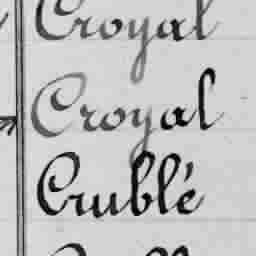 Croyal
Croyal
Crublé